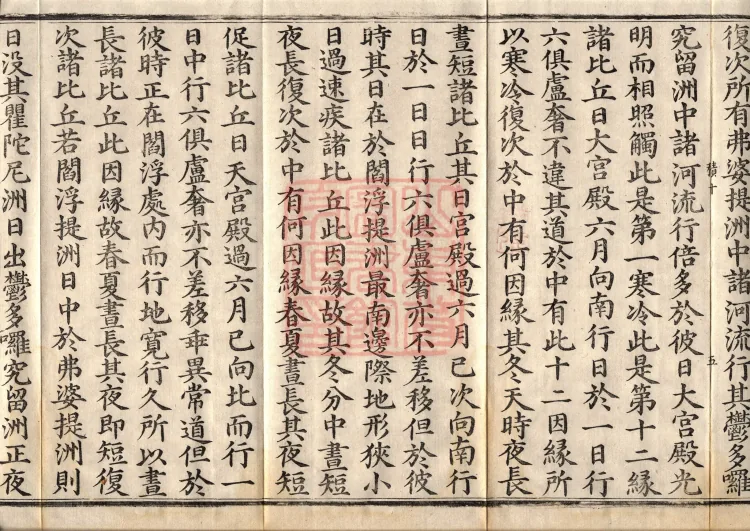 復次所有弗婆提洲中諸河流行其鬱多囉
績十
五
究留洲中諸河流行倍多於彼日大宮殿光
明而相照觸此是第一寒冷此是第十二緣
諸比丘日大宮殿六月向南行日於一日行
六俱盧奢不違其道於中有此十二因緣所
以寒冷復次於中有何因緣其冬天時夜長
晝短諸比丘其日宮殿過六月已次向南行
日於一日日行六俱盧奢亦不差移但於彼
時其日在於閻浮提洲最南邊際地形狹小
日過速疾諸比丘此因緣故其冬分中晝短
夜長復次於中有何因緣春夏晝長其夜短
促諸比丘日天宮殿過六月已向比而行一
日中行六俱盧奢亦不差移乖異常道但於
彼時正在閻浮處內而行地寬行久所以晝
長諸比丘此因緣故春夏晝長其夜即短復
次諸比丘若閻浮提洲日中於弗婆提洲則
日没其瞿陀尼洲日出鬱多囉究留洲正夜